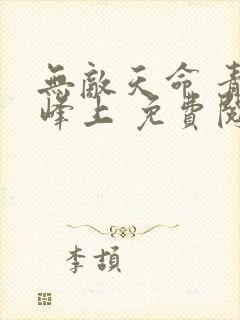 無敵天命 青
峰上 免費閱
李頡